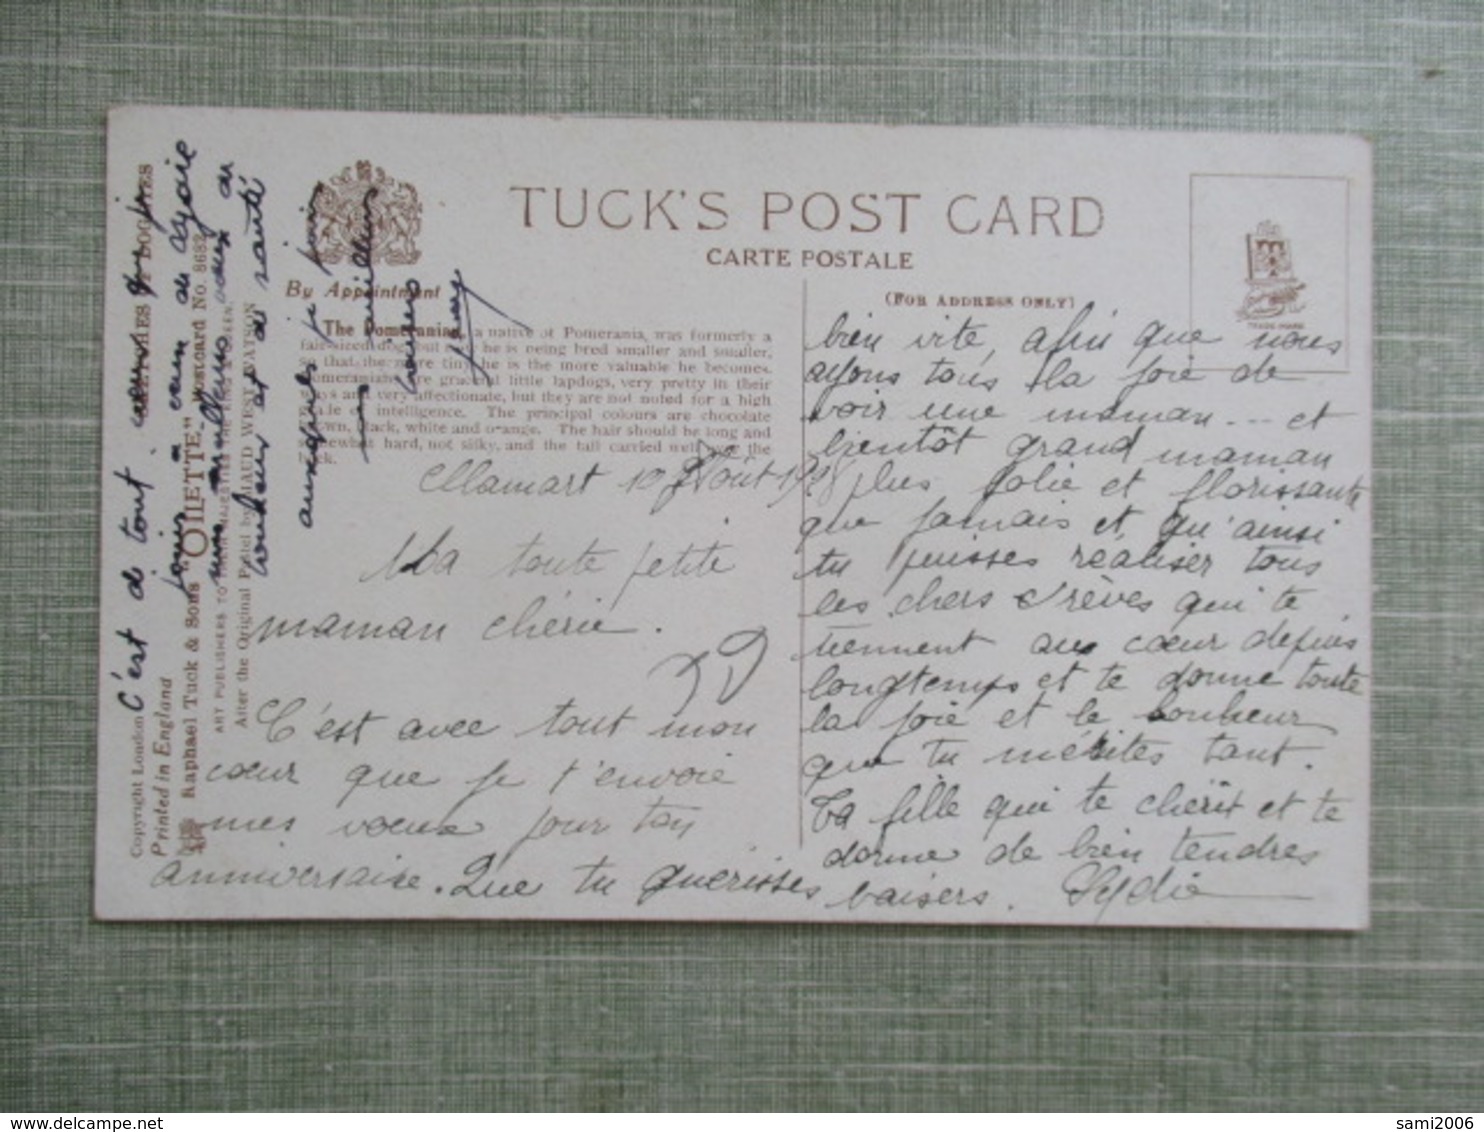 TUCK'S POST CARD
CARTE POSTALE
(FOR ADDRESS ONLY)
TRADE MARK
By Appointment
The Pomeranian, a native of Pomerania, was formerly a
fair-sized dog, but now he is being bred smaller and smaller,
so that the more tiny he is the more valuable he becomes.
Pomeranians are graceful little lapdogs, very pretty in their
ways and very affectionate, but they are not noted for a high
scale of intelligence. The principal colours are chocolate
brown, black, white and orange. The hair should be long and
somewhat hard, not silky, and the tail carried well over the
back.
Clamart 10 Août
Ma toute petite
maman chérie.
C'est avec tout mon
cœur que je t'envoie
mes voeux pour ton
anniversaire. Que tu guérisses
bien vite, afin que nous
ayons tous la joie de
voir une maman --- et
bientôt grand maman
plus jolie et florissante
que jamais et qu'ainsi
tu puisses réaliser tous
les chers rêves qui te
tiennent au cœur depuis
longtemps et te donne toute
la joie et le bonheur
que tu mérites tant.
Ta fille qui te chérit et te
donne de bien tendres
baisers. Lydie
C'est de tout cœur que je
joins
mes meilleurs vœux de
bonheur et de santé
auxquels je joins
mes meilleurs
baisers
Copyright London
Printed in England
Raphael Tuck & Sons "OILETTE" Postcard No. 8682
ART PUBLISHERS TO THEIR MAJESTIES THE KING & QUEEN.
After the Original Pastel by MAUD WEST WATSON
sami2006